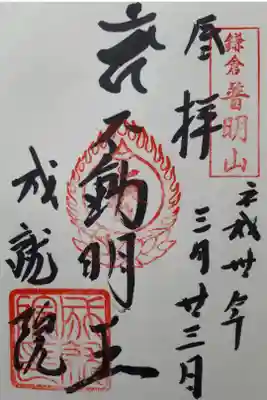 鎌倉
普明山
奉拝
平成卅年
三月廿三日
不動明王
成就院